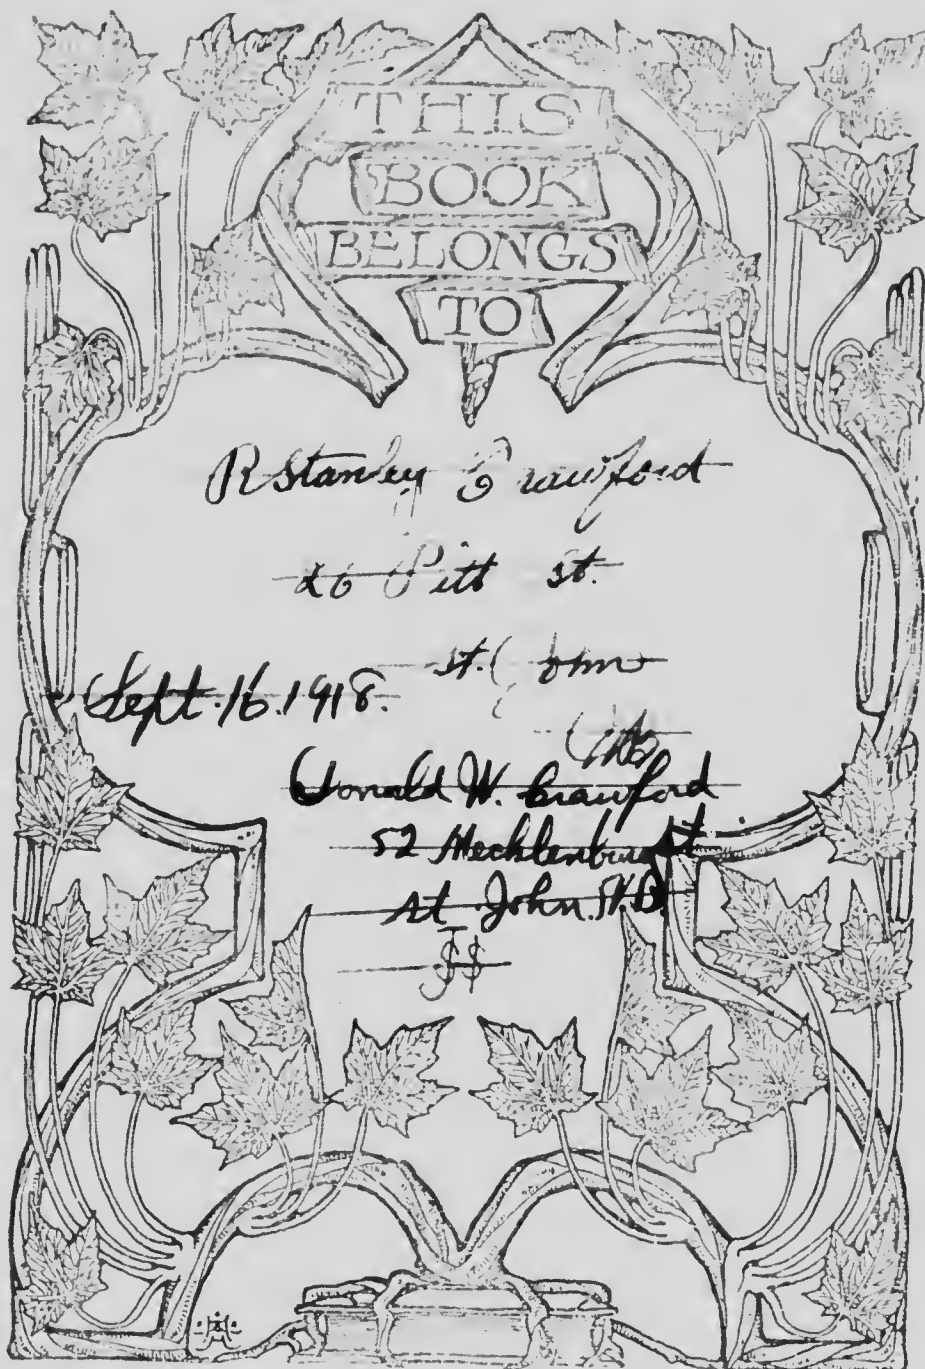 THIS
BOOK
BELONGS
TO
R Stanley Crawford
26 Pitt St.
St. John
Sept. 16. 1918.
Donald W. Crawford
52 Mecklenburg St
St John. N.B.